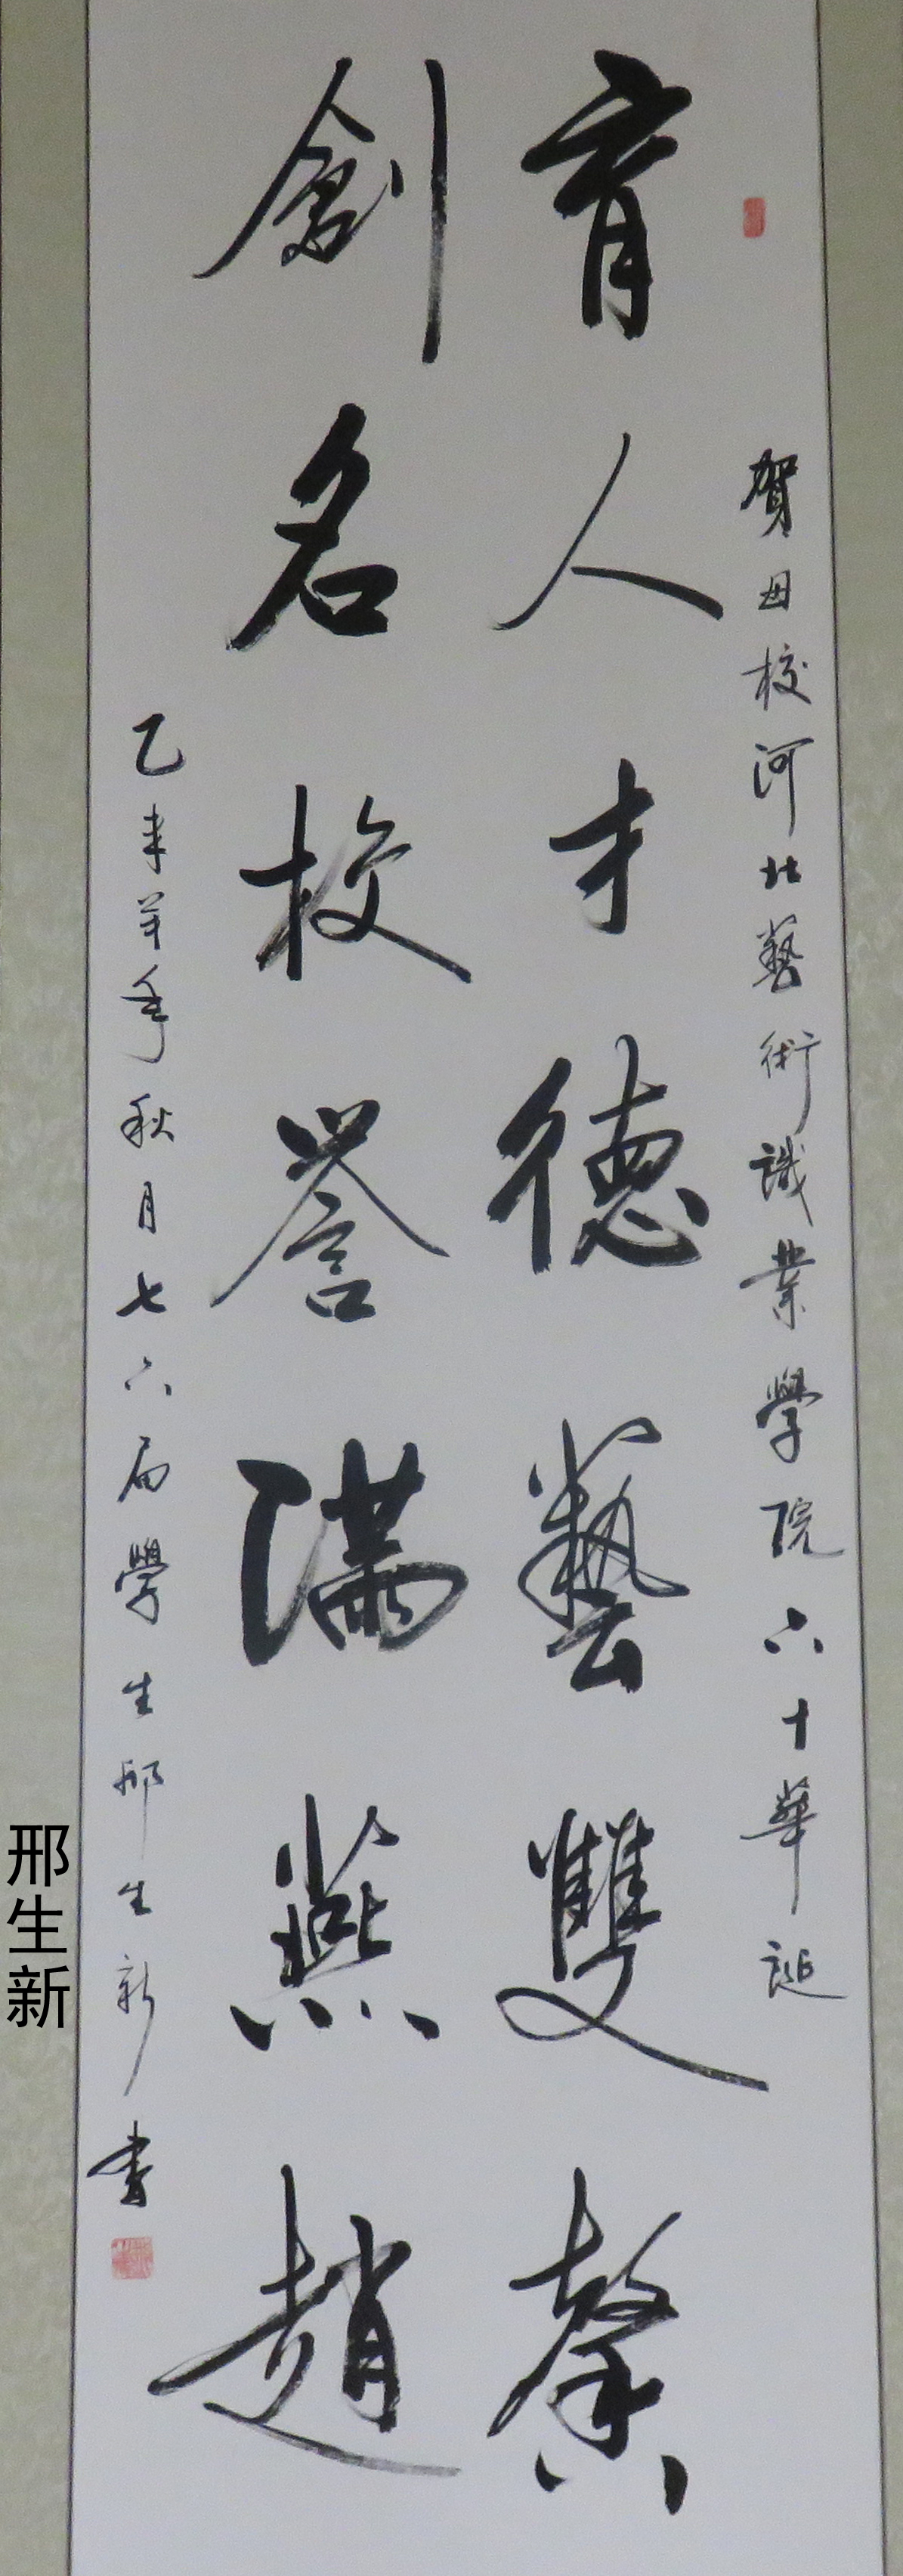 賀母校河北藝術職業學院六十華誕
育人才德藝雙馨
創名校譽滿燕趙
乙未羊年秋月七六届學生邢生新書
邢生新